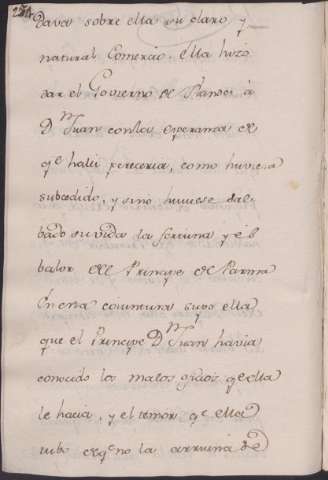 254
dava sobre ella su claro, y
natural Comercio: ella hizo
dar el Govierno de Flandes à
D.n Juan con la esperanza de
q.e hallí pereceria, como huviera
subcedido, y sino huviese sal-
bado su vida la fortuna y el
balor del Principe de Parma
En ena coiuntura supo ella
que el Principe D.n Juan havia
conocido los malos oficios q.e ella
le hacia, y el temor q.e ella
tubo de q.e no la arruiná se